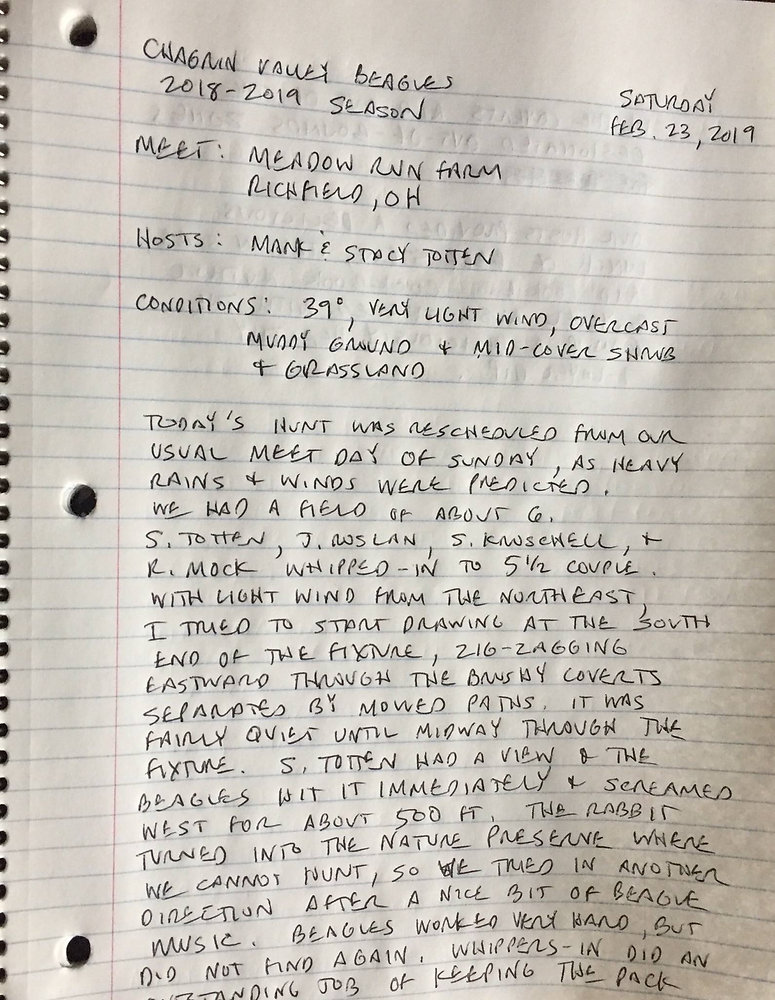 CHAGRIN VALLEY BEAGLES
2018-2019 SEASON
SATURDAY
FEB. 23, 2019
MEET: MEADOW RUN FARM
RICHFIELD, OH
HOSTS: MARK & STACY TOTTEN
CONDITIONS: 39°, VERY LIGHT WIND, OVERCAST
MUDDY GROUND & MID-COVER SHRUB
& GRASSLAND
TODAY'S HUNT WAS RESCHEDULED FROM OUR
USUAL MEET DAY OF SUNDAY, AS HEAVY
RAINS & WINDS WERE PREDICTED.
WE HAD A FIELD OF ABOUT 6.
S. TOTTEN, J. RUSLAN, S. KRUSCHELL, &
R. MOCK WHIPPED-IN TO 5 1/2 COUPLE.
WITH LIGHT WIND FROM THE NORTHEAST,
I TRIED TO START DRAWING AT THE SOUTH
END OF THE FIXTURE, ZIG-ZAGGING
EASTWARD THROUGH THE BRUSHY COVERTS
SEPARATED BY MOWED PATHS. IT WAS
FAIRLY QUIET UNTIL MIDWAY THROUGH THE
FIXTURE. S. TOTTEN HAD A VIEW & THE
BEAGLES HIT IT IMMEDIATELY & SCREAMED
WEST FOR ABOUT 500 FT. THE RABBIT
TURNED INTO THE NATURE PRESERVE WHERE
WE CANNOT HUNT, SO WE TRIED IN ANOTHER
DIRECTION AFTER A NICE BIT OF BEAGLE
MUSIC. BEAGLES WORKED VERY HARD, BUT
DID NOT FIND AGAIN. WHIPPERS-IN DID AN
OUTSTANDING JOB OF KEEPING THE PACK